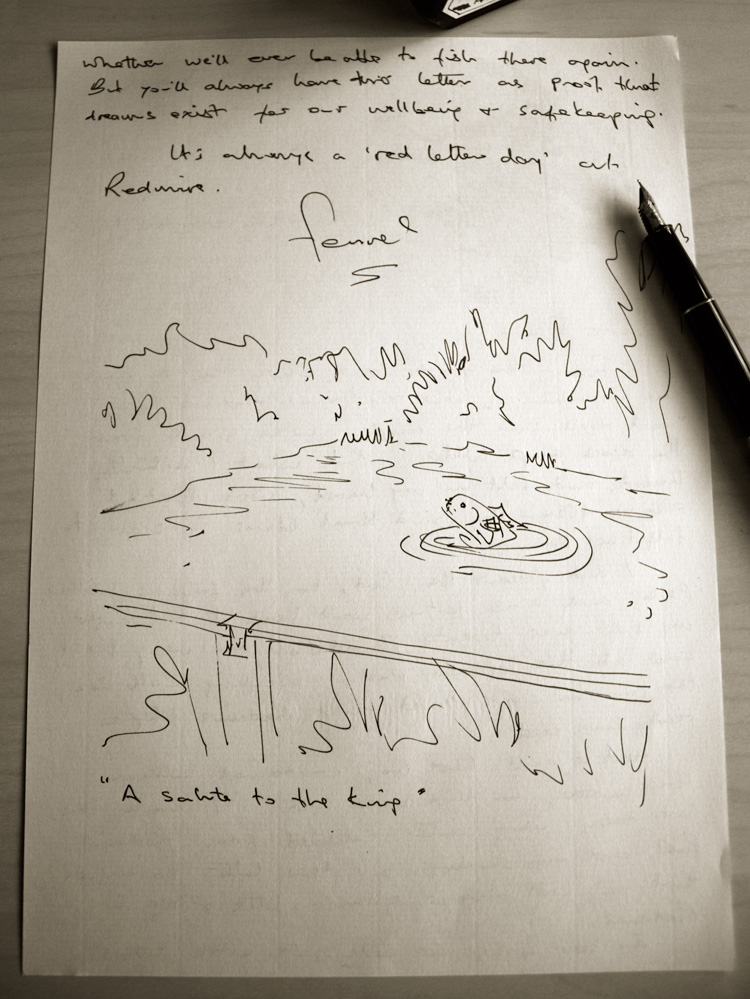 whether we'll ever be able to fish there again.
But you'll always have this letter as proof that
dreams exist for our wellbeing & safekeeping.
It's always a 'red letter day' at
Redmire.
Fennel
"A salute to the King"